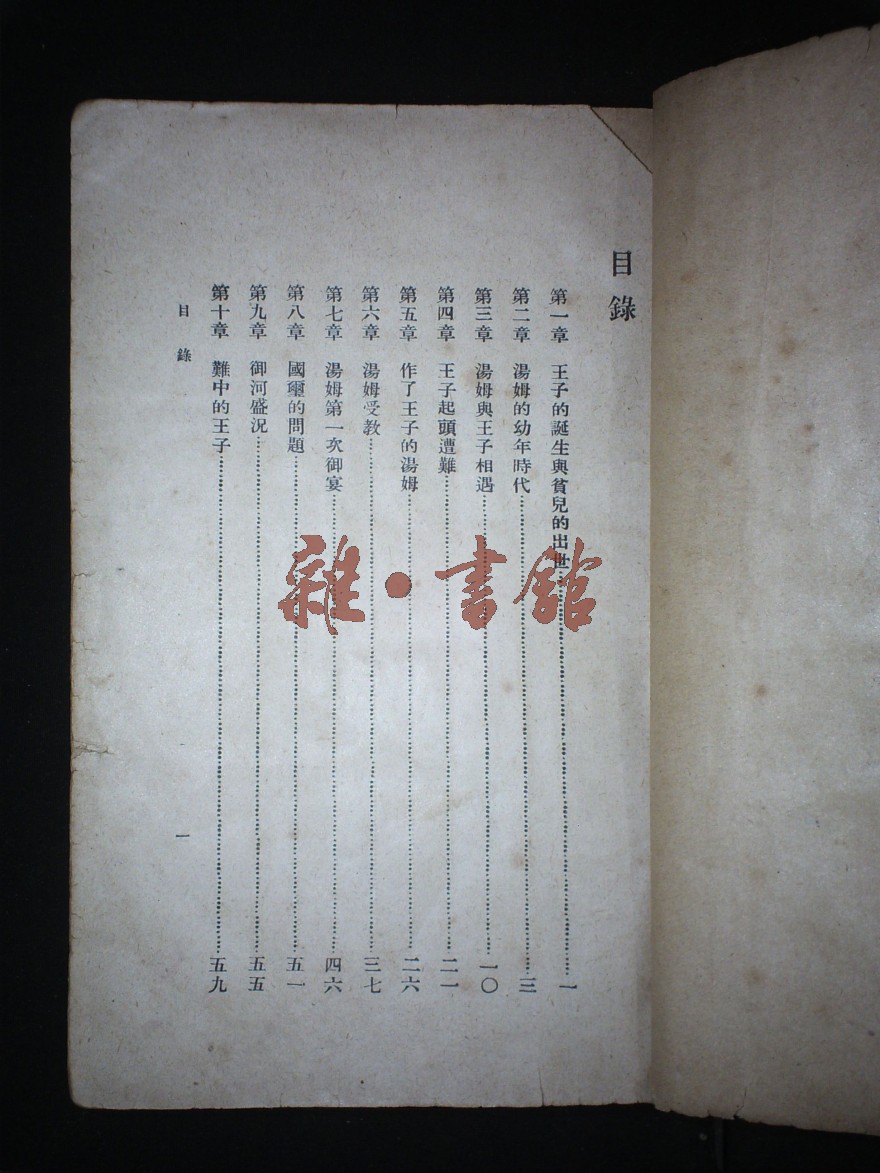 目錄
第一章　王子的誕生與貧兒的出世…………一
第二章　湯姆的幼年時代…………三
第三章　湯姆與王子相遇…………一〇
第四章　王子起頭遭難…………二一
第五章　作了王子的湯姆…………二六
第六章　湯姆受教…………三七
第七章　湯姆第一次御宴…………四六
第八章　國璽的問題…………五一
第九章　御河盛況…………五五
第十章　難中的王子…………五九
目錄　一
雜・書館